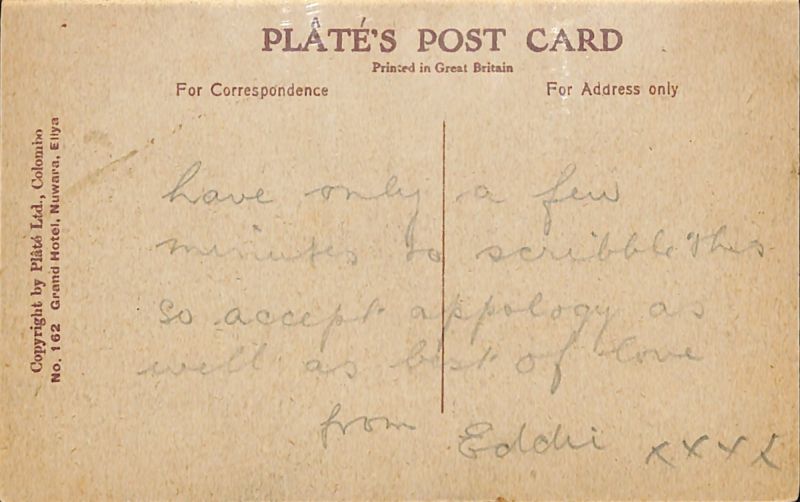 PLÂTÉ'S POST CARD
Printed in Great Britain
For Correspondence
For Address only
Copyright by Plâté Ltd., Colombo
No. 162 Grand Hotel, Nuwara, Eliya
have only a few
minutes to scribble this
so accept appology as
well as best of love
from Eddie xxxx